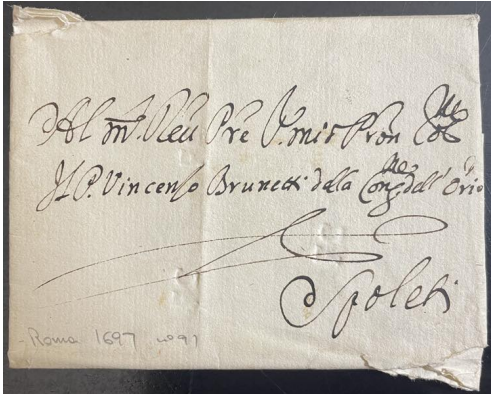 Al m.to Reu Pre V. mio Pron Col.mo
Il P. Vincenso Brunetti della Cong.ne dell' Orio
Spoleti
- Roma 1697